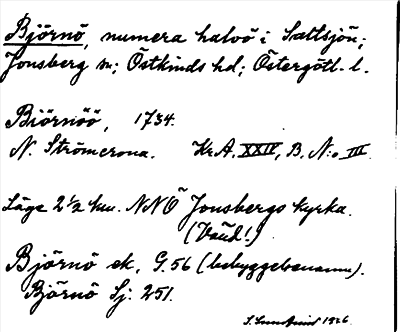 Björnö, numera halvö i Saltsjön;
Jonsberg sn; Östkinds hd; Östergötl. l.
Biörnöö, 1734.
N. Strömcrona. Kr.A. XXIV, B. N:o III
Läge 2 1/2 km. NNÖ Jonsbergs kyrka.
(Vänd!)
Björnö ek, G. 56 (bebyggelsenamn).
Björnö Sj: 251.
1926